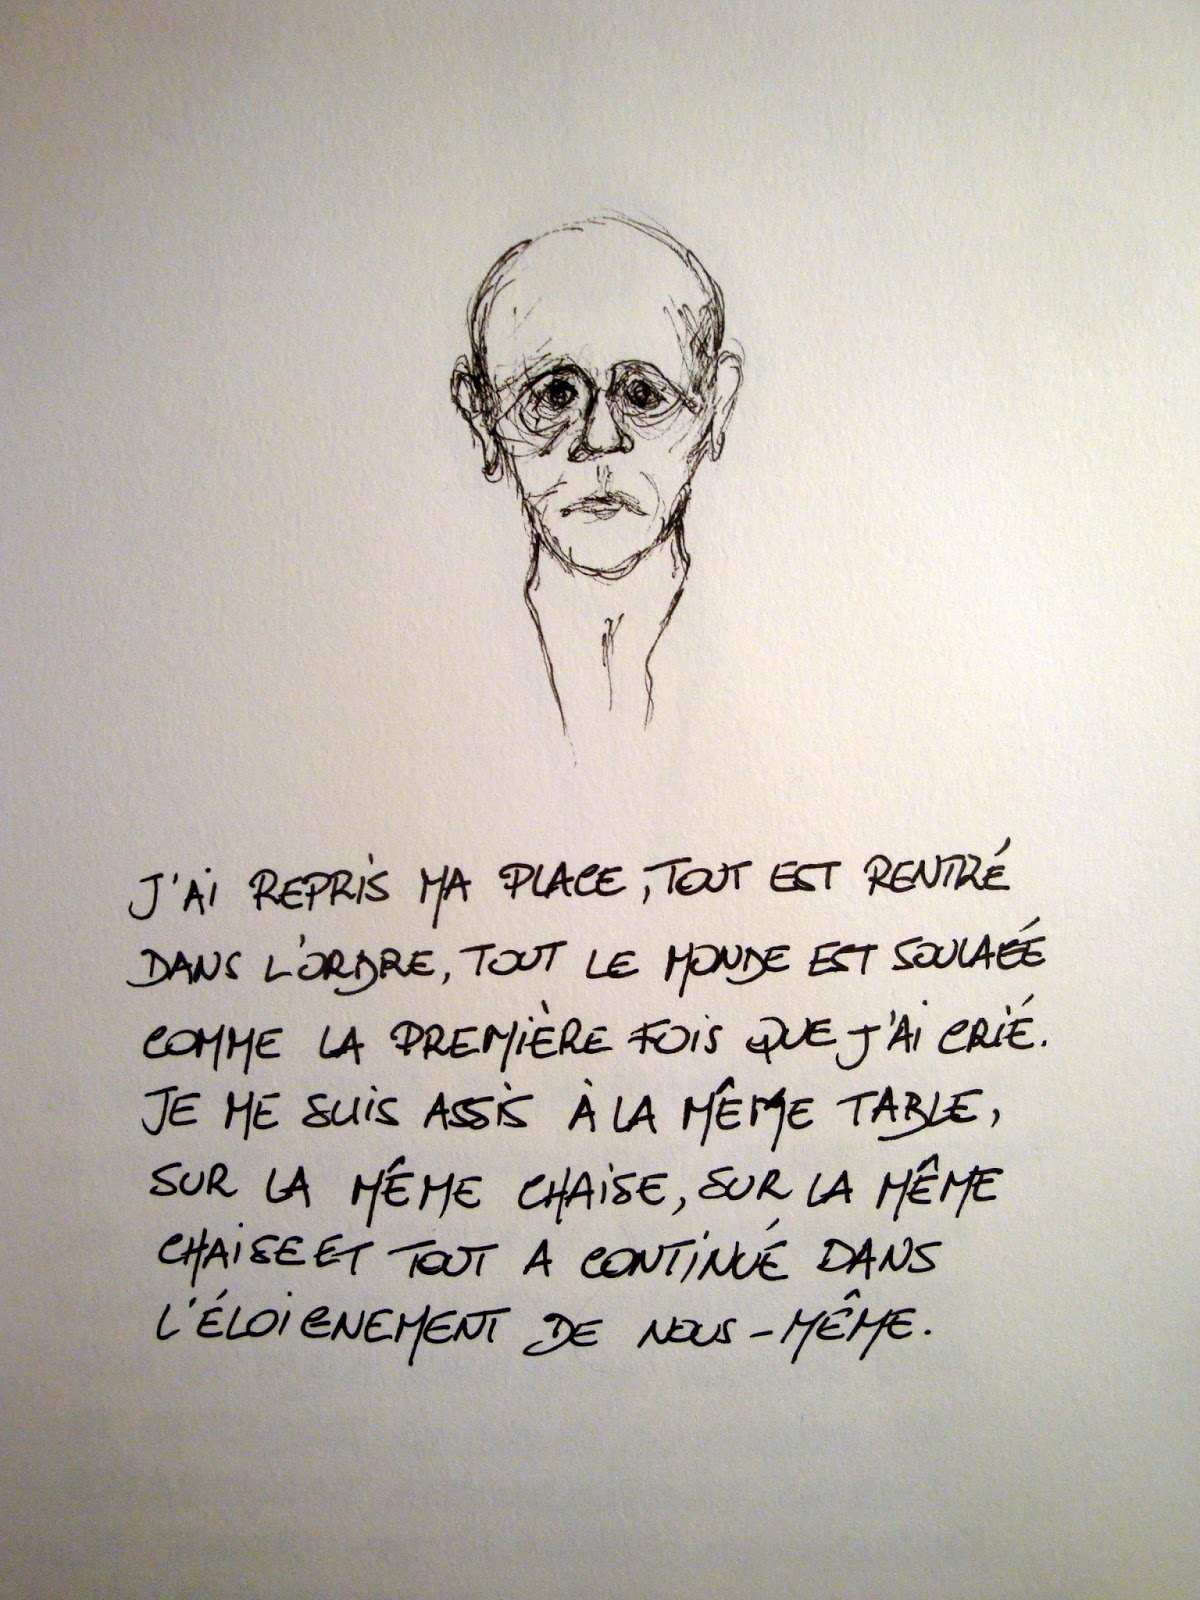 J'AI REPRIS MA PLACE, TOUT EST RENTRÉ
DANS L'ORDRE, TOUT LE MONDE EST SOULAGÉ
COMME LA PREMIÈRE FOIS QUE J'AI CRIÉ.
JE ME SUIS ASSIS À LA MÊME TABLE,
SUR LA MÊME CHAISE, SUR LA MÊME
CHAISE ET TOUT A CONTINUÉ DANS
L'ÉLOIGNEMENT DE NOUS-MÊME.